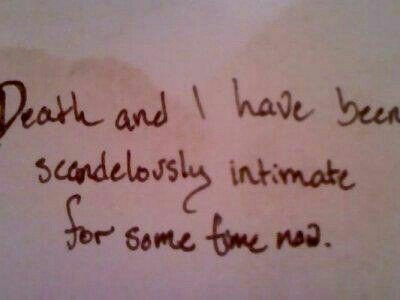 Death and I have been
scandelously intimate
for some time now.